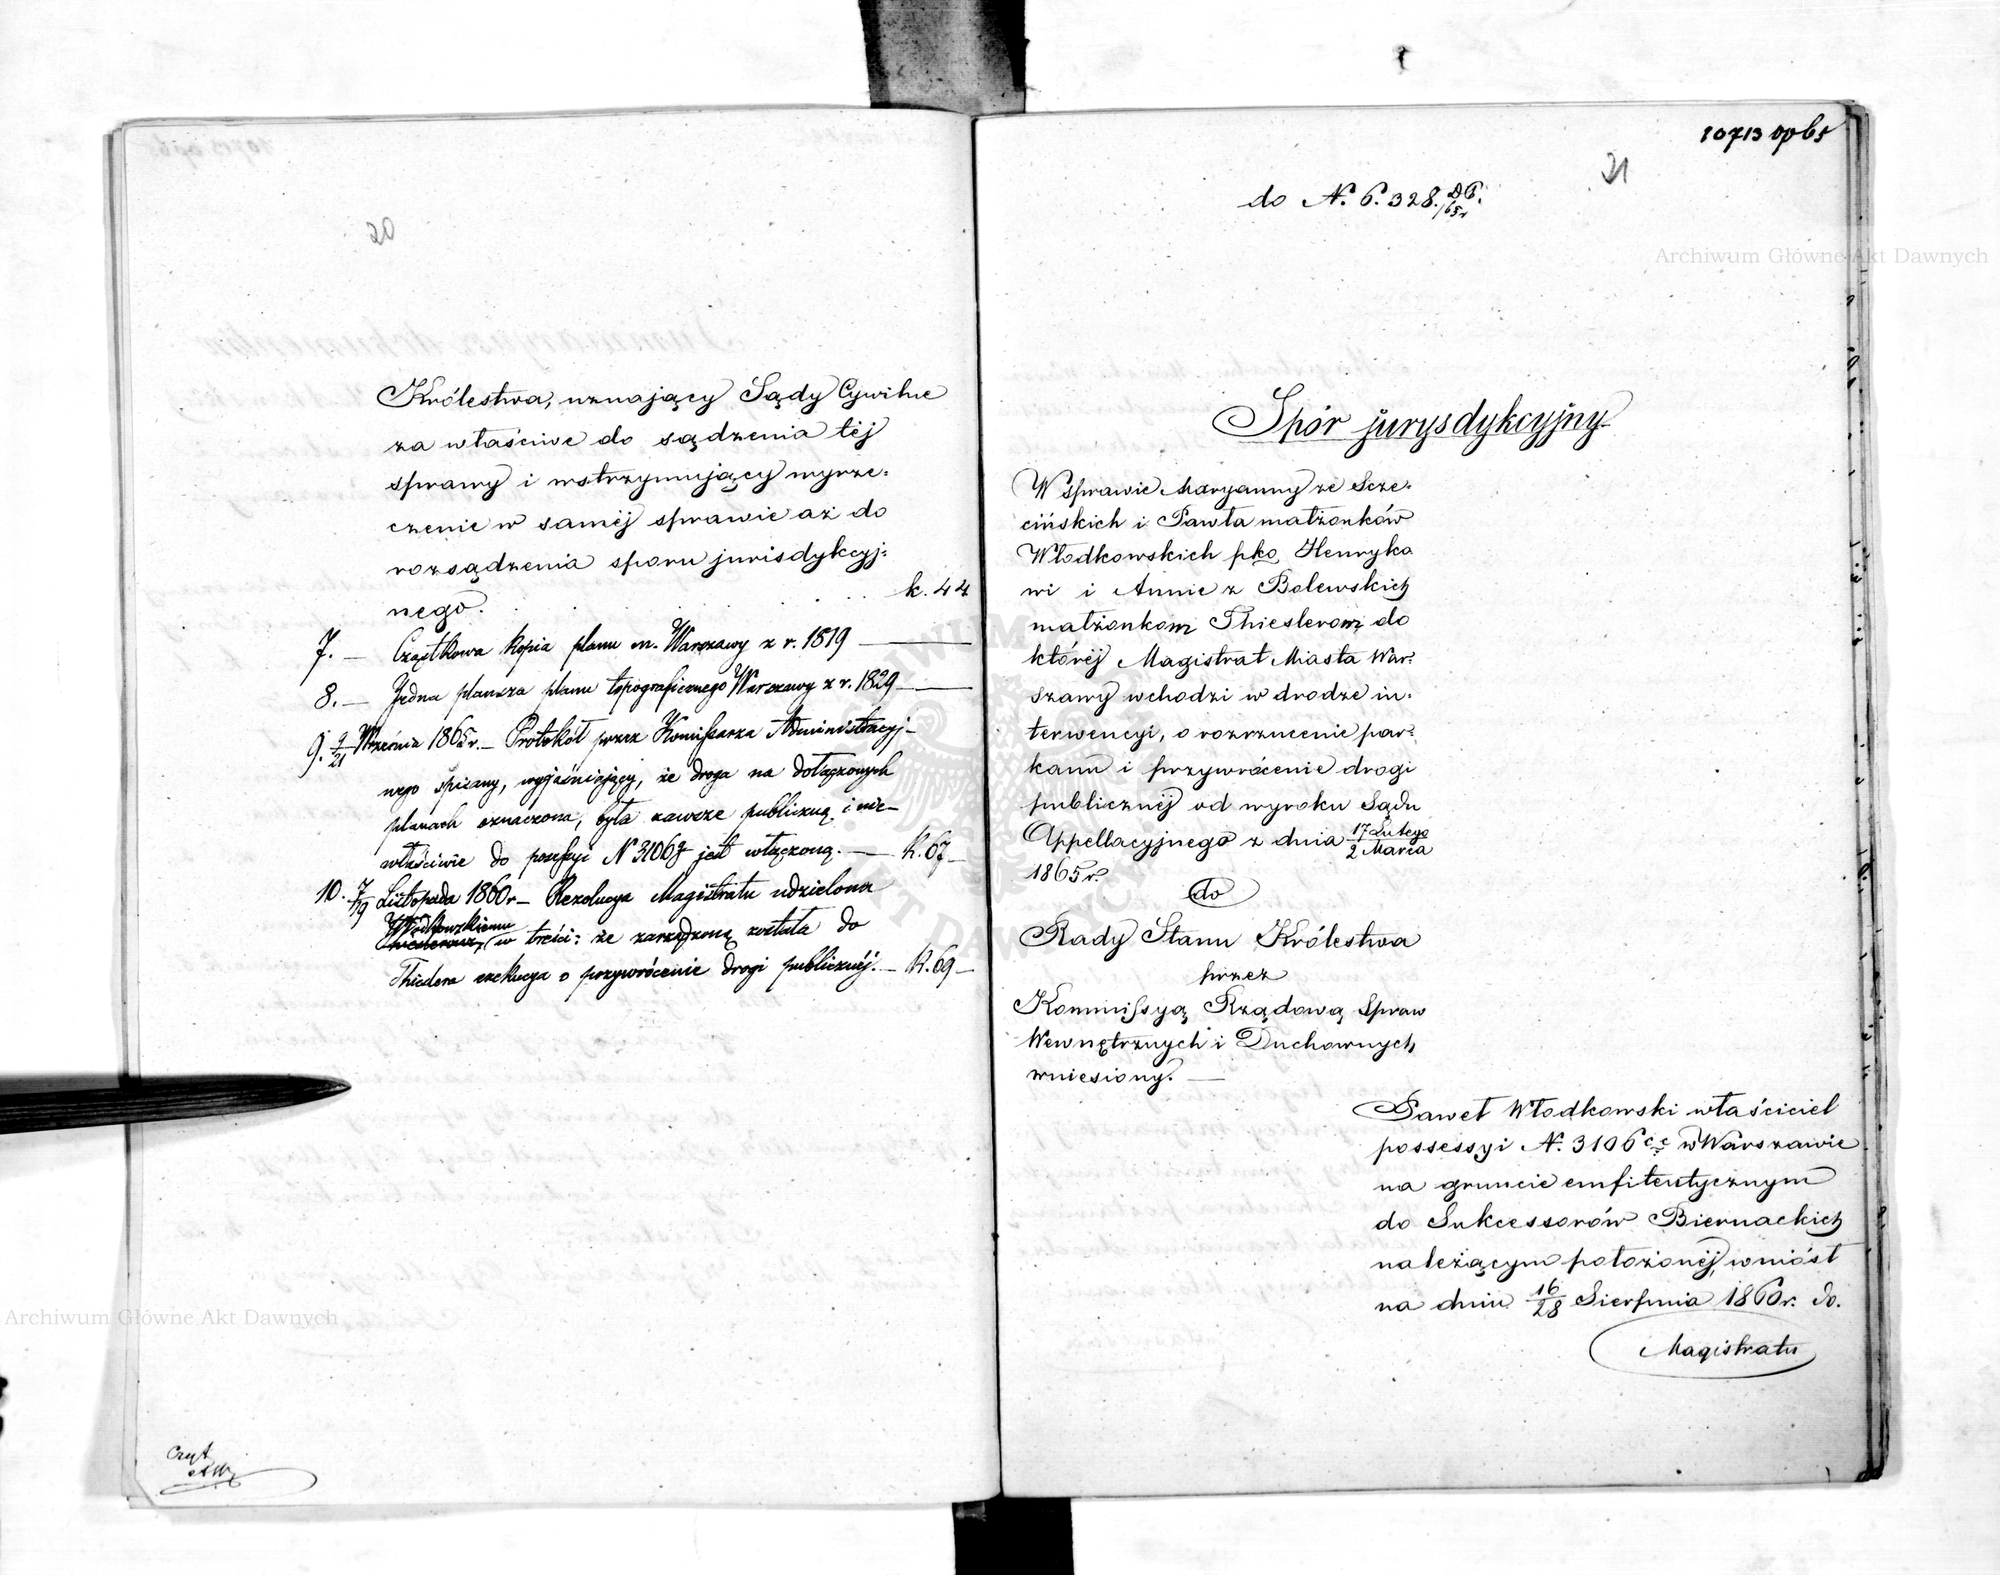 20
Królestwa, uznający Sądy Cywilne
za właściwe do sądzenia téj
sprawy i wstrzymujący wyrze=
czenie w saméj sprawie aż do
rozsądzenia sporu jurisdykcyj=
nego. k. 44
7. — Cząstkowa kopia planu m. Warszawy z r. 1819 —
8. — Jedna plansza planu topograficznego Warszawy z r. 1829 —
9. 9/21 Września 1865 r. — Protokół przez Komissarza Administracyj-
nego spisany, wyjaśniający, że droga na dołączonych
planach oznaczona, była zawsze publiczną i nie-
właściwie do possesyi N 3106 jest włączoną. — k. 67 —
10. 7/19 Listopada 1860 r — Rezolucya Magistratu udzielona
Włodkowskiemu
w treści: że zarządzoną została do
Thieslera exekucya o przywrócenie drogi publicznéj. — k. 69 —
Czyt
10713 op 65
21
do N. 6.328.
Spór jurysdykcyjny
W sprawie Maryanny ze Szcze=
cińskich i Pawła małżonków
Włodkowskich pko Henryko
wi i Annie z Bolewskich
małżonkom Thieslerom, do
któréj Magistrat Miasta War=
szawy wchodzi w drodze in=
terwencyi, o rozrzucenie par=
kanu i przywrócenie drogi
publicznéj od wyroku Sądu
Appellacyjnego z dnia 17 Lutego/2 Marca
1865 r.
do
Rady Stanu Królestwa
przez
Kommissyą Rządową Spraw
Wewnętrznych i Duchownych
wniesiony. —
Paweł Włodkowski właściciel
possessyi N. 3106 cc w Warszawie
na gruncie emfiteutycznym
do Sukcessorów Biernackich
należącym położonéj, wniósł
na dniu 16/28 Sierpnia 1860 r. do.
Magistratu
Archiwum Główne Akt Dawnych
Archiwum Główne Akt Dawnych